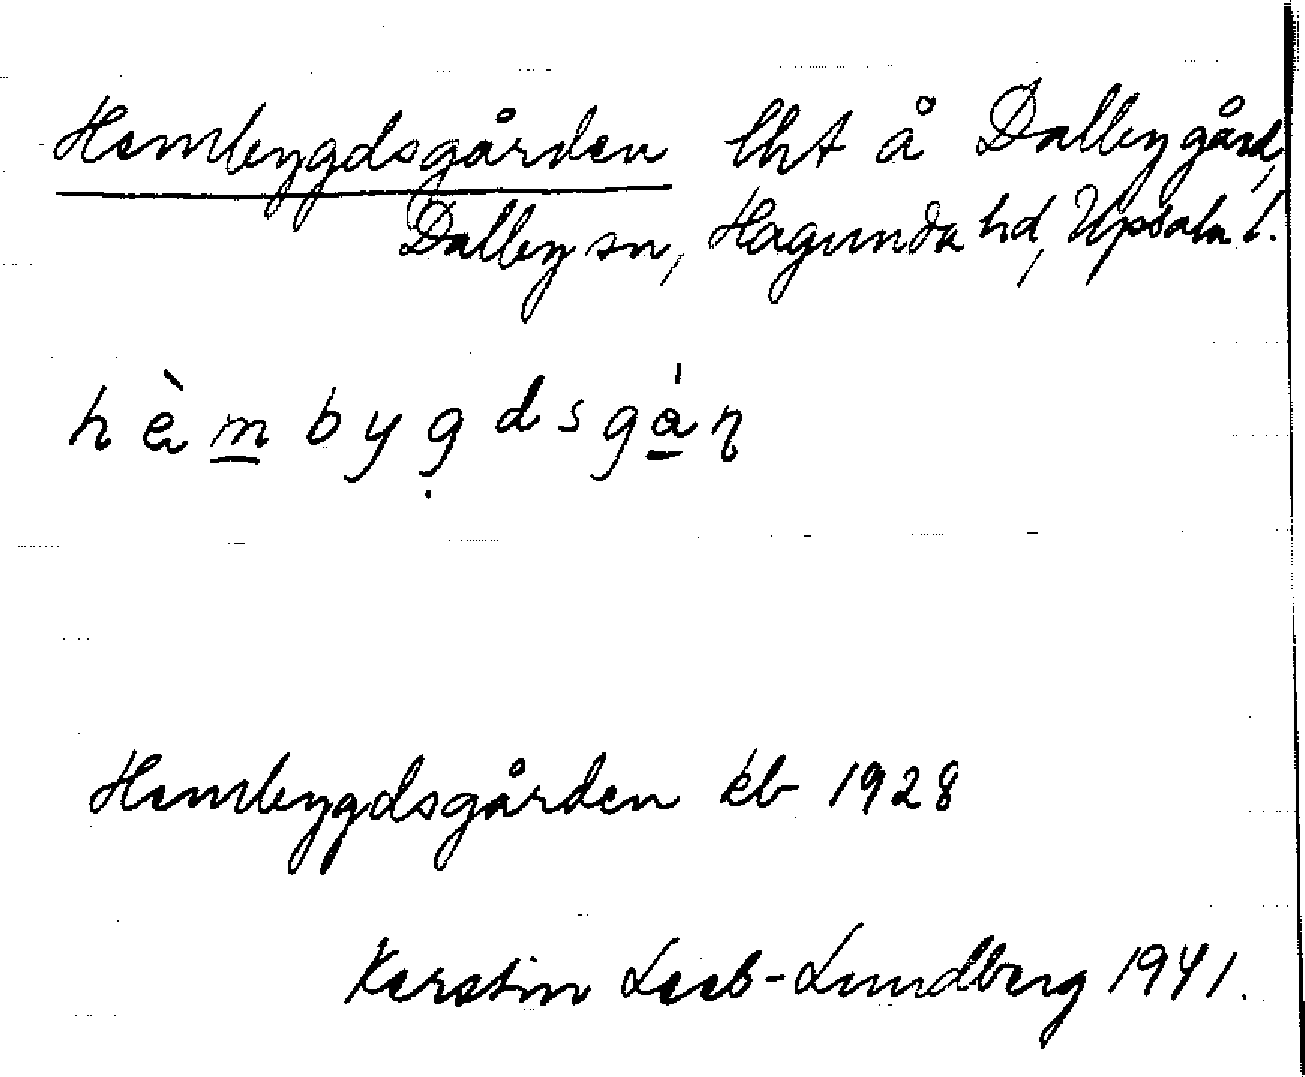 Hembygdsgården lht å Dalby gård,
Dalby sn, Hagunda hd, Upsala l.
hè̱m̱bygdsgá̱ṇ
Hembygdsgården kb 1928
Kerstin Leeb-Lundberg 1941.